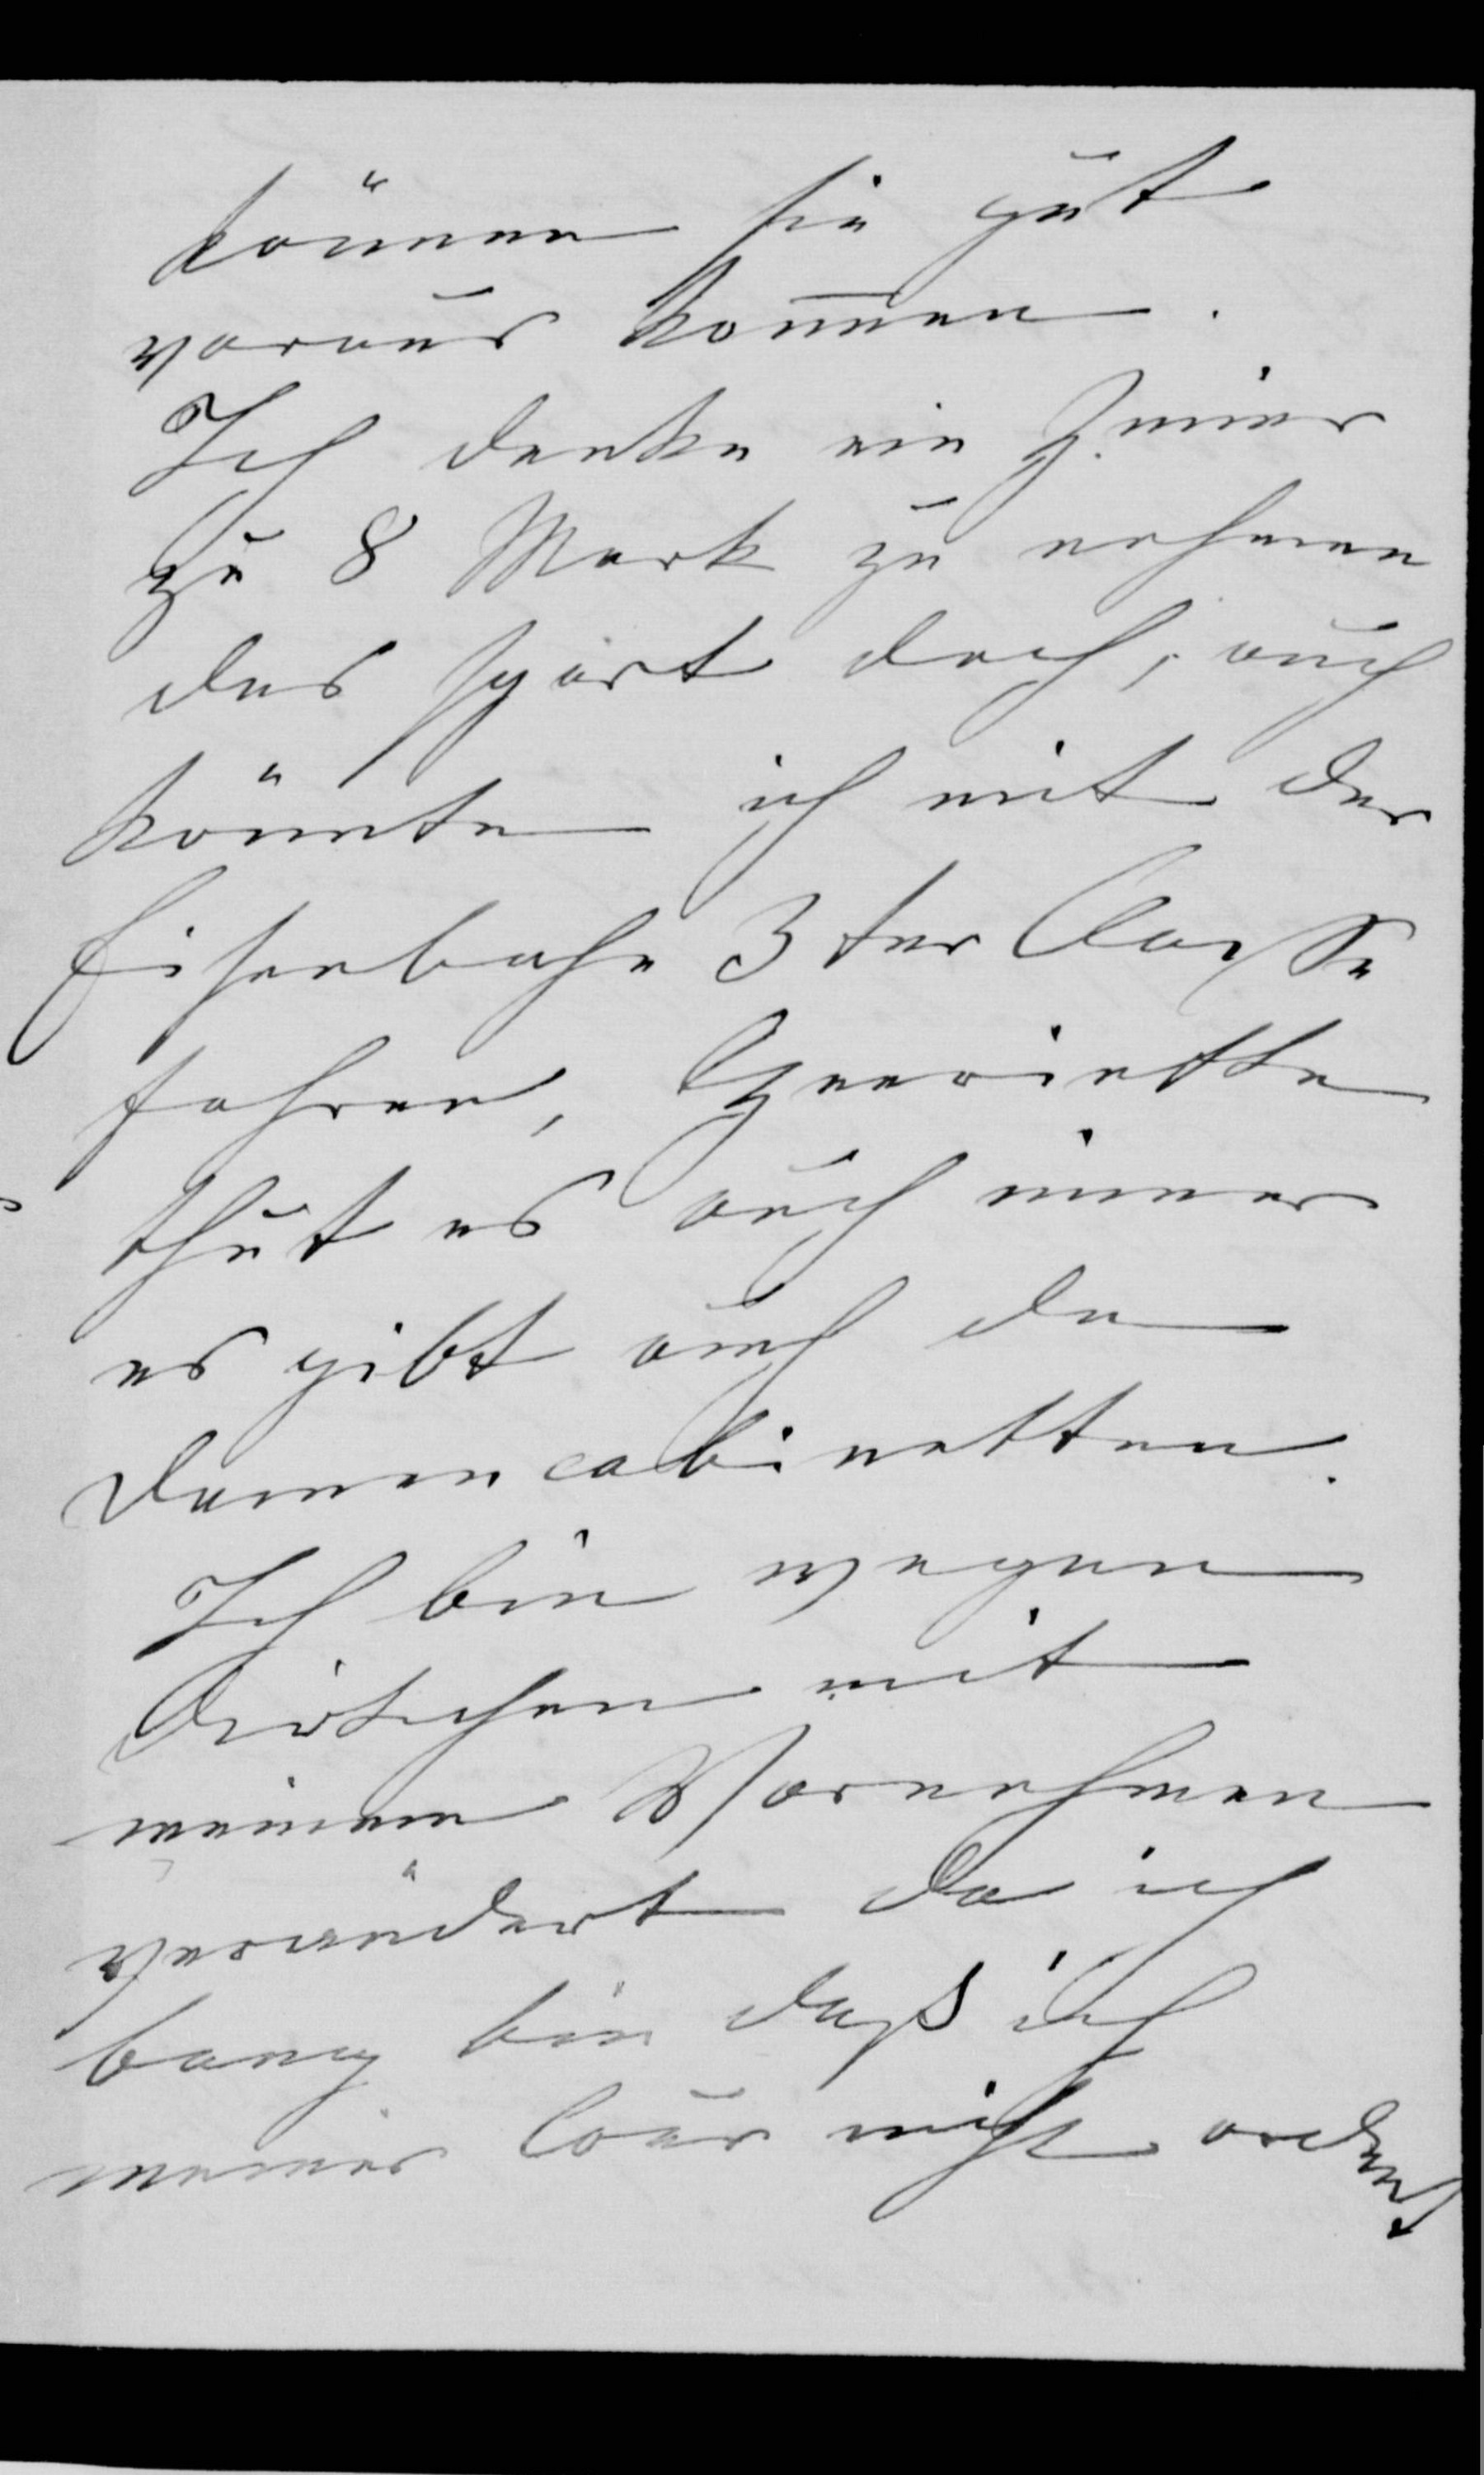 können sie gut
voraus kom̅en.
Ich denke ein Zimer
zu 8 Mark zu nehmen
das spart doch, auch
könnte ich mit der
Eisenbahn 3ter Classe
fahren, Henriette
thut es auch immer
es gibt auch da
Damencabinetten.
Ich bin wegen
mit
meinem Vornehmen
verändert da ich
bang bin daß ich
meine Cour nicht ordent